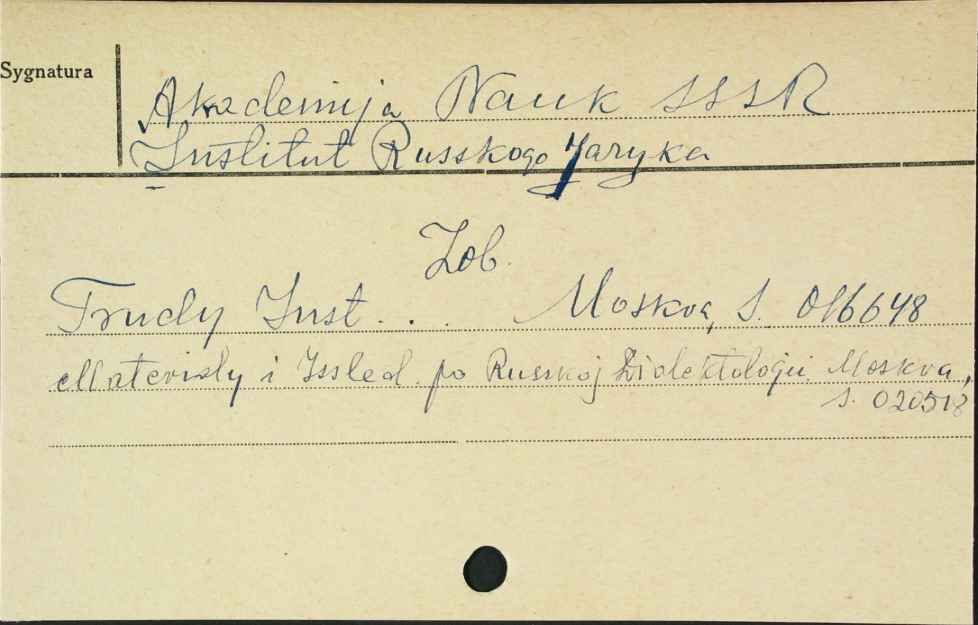 Sygnatura
Akademija Nauk SSSR
Institut Russkogo Jazyka
Zob.
Trudy Inst... Moskva, S. 016648
Materialy i Issled. po Russkoj Dialektologii Moskva,
S. 020518